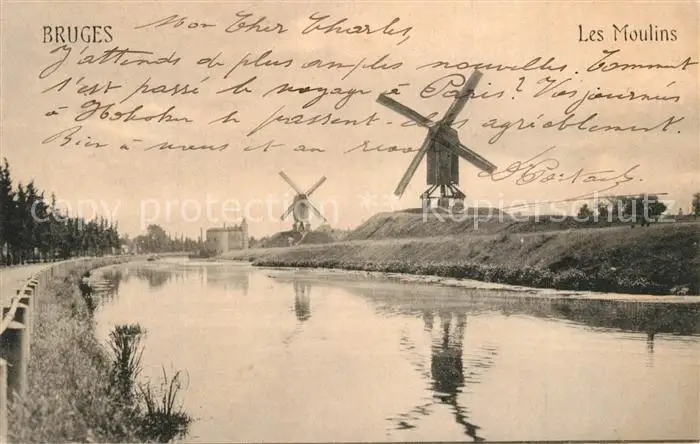 BRUGES
Les Moulins
Mon Cher Charles,
J'attends de plus amples nouvelles. Comment
s'est passé le voyage à Paris? Vos journées
à Hoboken se passent-elles agréablement.
Bien à vous et au revoir
copyright protection
copyright protection